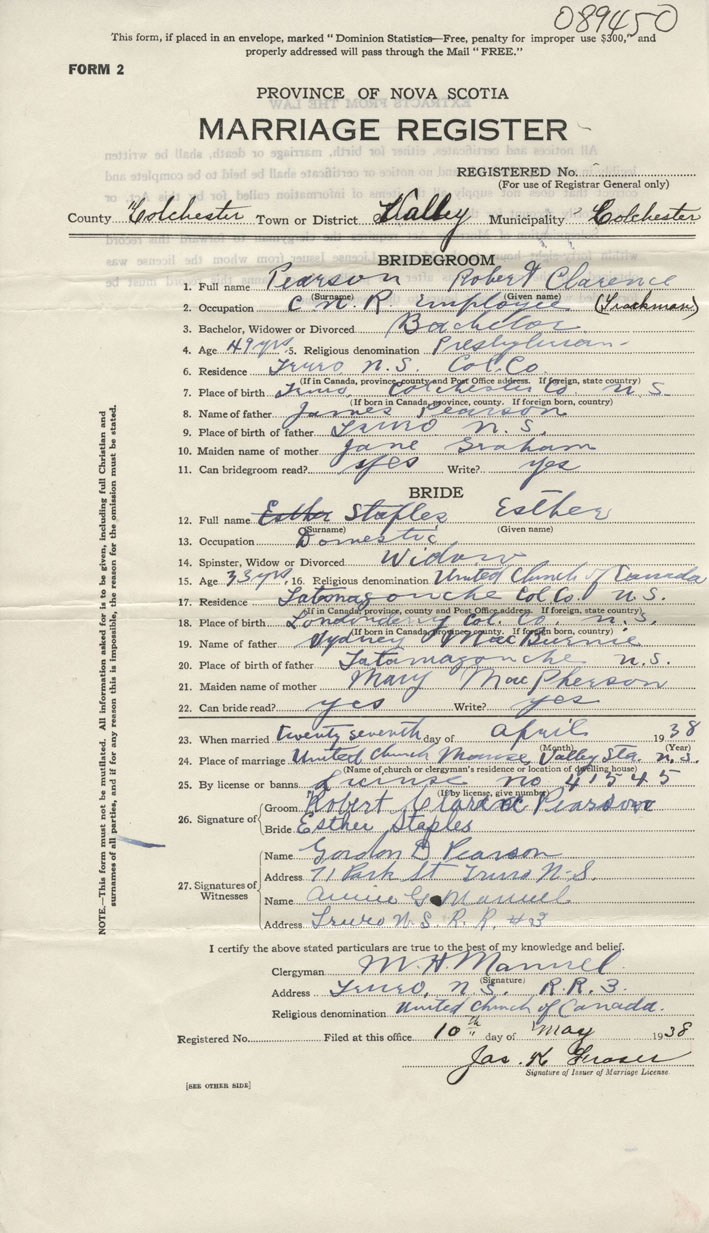 089450
This form, if placed in an envelope, marked "Dominion Statistics—Free, penalty for improper use $300," and
properly addressed will pass through the Mail "FREE."
FORM 2
PROVINCE OF NOVA SCOTIA
MARRIAGE REGISTER
REGISTERED No.
(For use of Registrar General only)
County Colchester Town or District Valley Municipality Colchester
BRIDEGROOM
1. Full name Pearson Robert Clarence
(Surname) (Given name)
2. Occupation C.N.R. Employee (Trackman)
3. Bachelor, Widower or Divorced Bachelor
4. Age 49 yrs. 5. Religious denomination Presbyterian
6. Residence Truro N.S. Col. Co.
(If in Canada, province, county and Post Office address. If foreign, state country)
7. Place of birth Truro, Colchester Co. N.S.
(If born in Canada, province, county. If foreign born, country)
8. Name of father James Pearson
9. Place of birth of father Truro N.S.
10. Maiden name of mother Jane Graham
11. Can bridegroom read? yes Write? yes
BRIDE
12. Full name Esther Staples Esther
(Surname) (Given name)
13. Occupation Domestic
14. Spinster, Widow or Divorced Widow
15. Age 33 yrs. 16. Religious denomination United Church of Canada
17. Residence Tatamagouche Col. Co. N.S.
(If in Canada, province, county and Post Office address. If foreign, state country)
18. Place of birth Londonderry Col. Co. N.S.
(If born in Canada, province, county. If foreign born, country)
19. Name of father Sydney MacBurnie
20. Place of birth of father Tatamagouche N.S.
21. Maiden name of mother Mary MacPherson
22. Can bride read? yes Write? yes
23. When married twenty seventh day of April 1938
(Month) (Year)
24. Place of marriage United Church Manse, Valley Sta. N.S.
(Name of church or clergyman's residence or location of dwelling house)
25. By license or banns License no 41545
(If by license, give number)
26. Signature of
Groom Robert Clarence Pearson
Bride Esther Staples
27. Signatures of Witnesses
Name Gordon D Pearson
Address 71 Park St Truro N.S.
Name Annie G. Mannel
Address Truro N.S. R.R. #3
I certify the above stated particulars are true to the best of my knowledge and belief.
Clergyman M. H. Mannel
(Signature)
Address Truro, N.S. R.R.3.
Religious denomination United Church of Canada.
Registered No. Filed at this office 10th day of May 1938
Jas. K Fraser
Signature of Issuer of Marriage License.
[SEE OTHER SIDE]
NOTE.—This form must not be mutilated. All information asked for is to be given, including full Christian and
surnames of all parties, and if for any reason this is impossible, the reason for the omission must be stated.